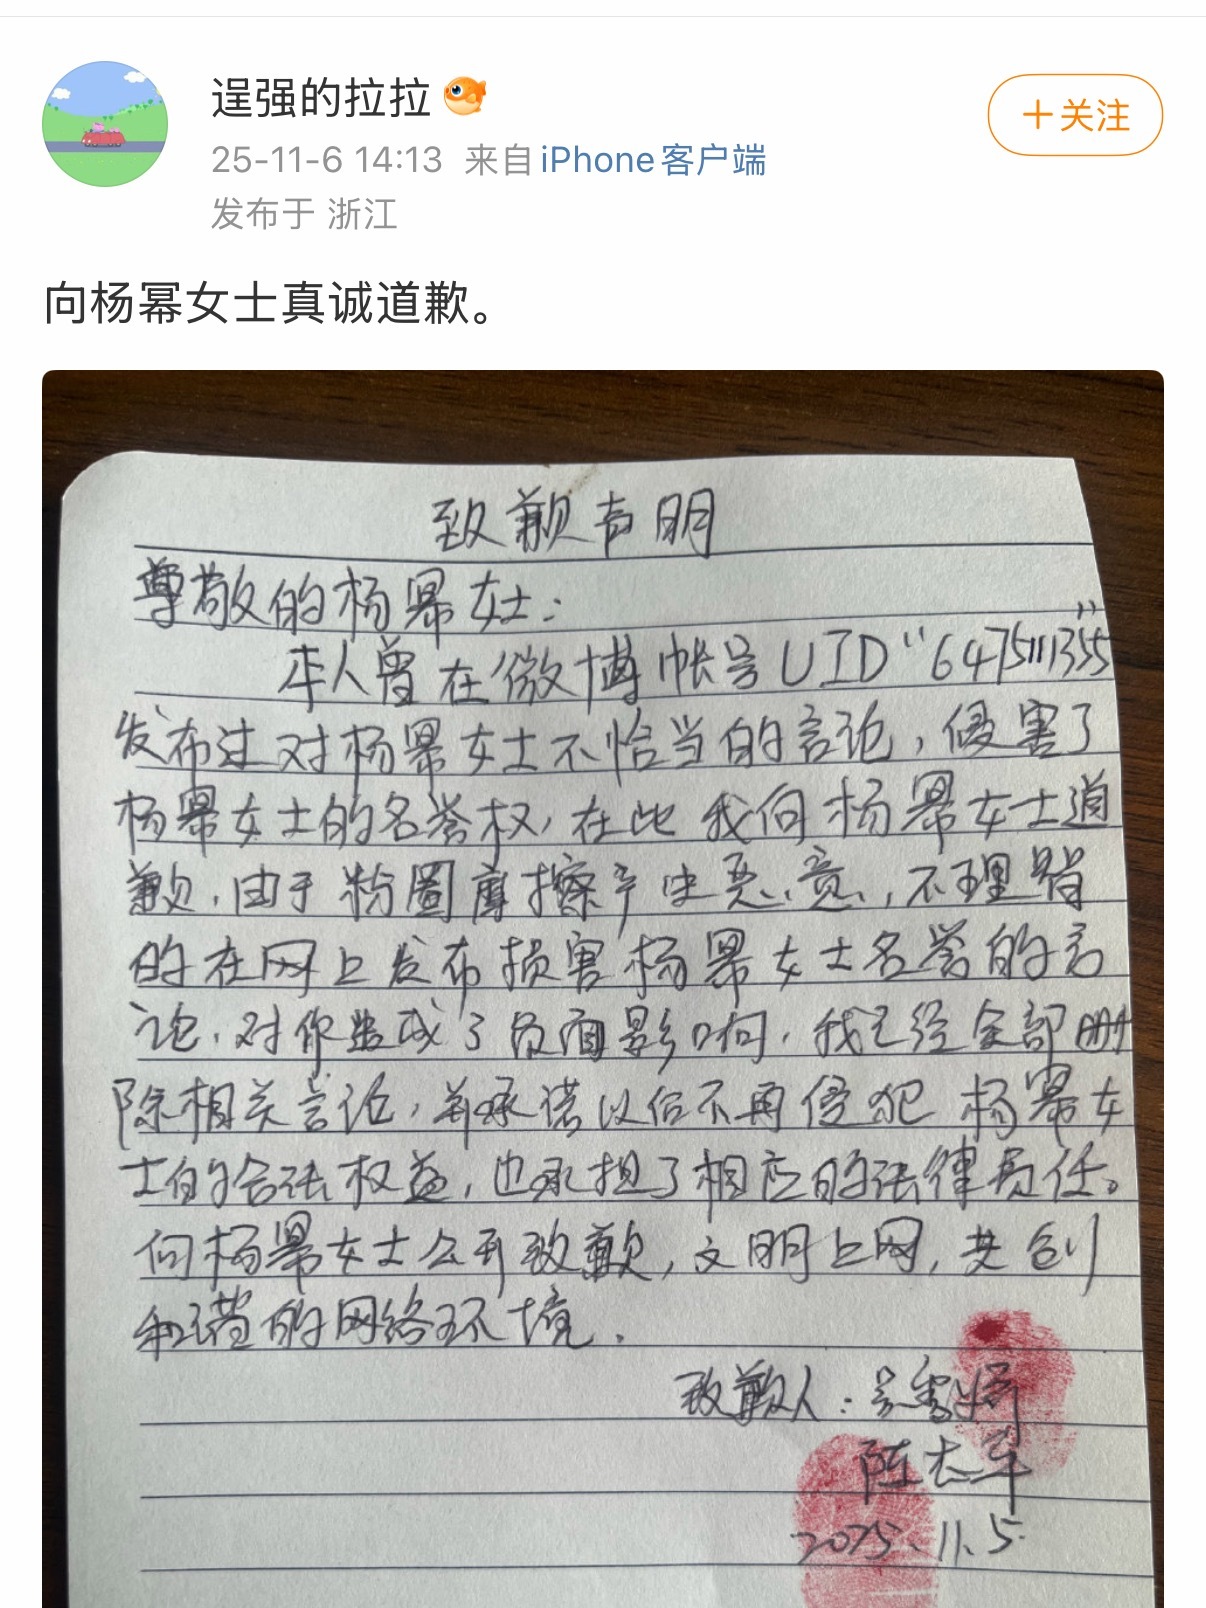 逞强的拉拉
25-11-6 14:13 来自 iPhone客户端
发布于 浙江
+关注
向杨幂女士真诚道歉。
致歉声明
尊敬的杨幂女士：
本人曾在微博帐号UID“6475111355”
发布过对杨幂女士不恰当的言论，侵害了
杨幂女士的名誉权，在此我向杨幂女士道
歉，由于粉圈摩擦产生恶意，不理智
的在网上发布损害杨幂女士名誉的言
论，对你造成了负面影响，我已经全部删
除相关言论，并承诺以后不再侵犯杨幂女
士的合法权益，也承担了相应的法律责任。
向杨幂女士公开致歉，文明上网，共创
和谐的网络环境．
致歉人：吴雪
陈志军
2025.11.5